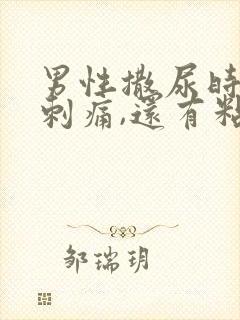 男性撒尿時
刺痛,還有粘
邹瑞玥